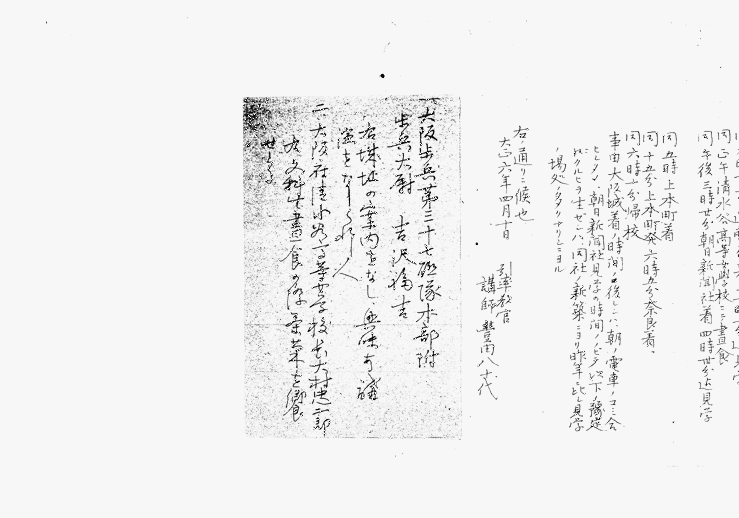 同正午清水谷高等女学校ニテ昼食
同午後三時廿分朝日新聞社着四時廿分迄見学
同五時上本町着
同十五分上本町発六時五分奈良着、
同六時十分帰校
事由大阪城着ノ時間ノ後レシハ朝ノ電車ノコミ合
ヒシタメ、朝日新聞社見学の時間ノノビテ以下ノ予定
ニクルヒヲ生ゼシハ同社ノ新築ニヨリ昨年ニ比シ見学
ノ場処ノタクサンナリシニヨル
右ノ通リニ候也
大正六年四月十日
引率教官
講師 豊田八十代
一、大阪歩兵第三十七聯隊本部附
歩兵大尉 吉沢
右城址の案内をなし、興味ある講
をなしくれし人
二、大阪府清水谷高等女学校長大村忠二郎
右文科生昼食の際茶菓を饗
せらる